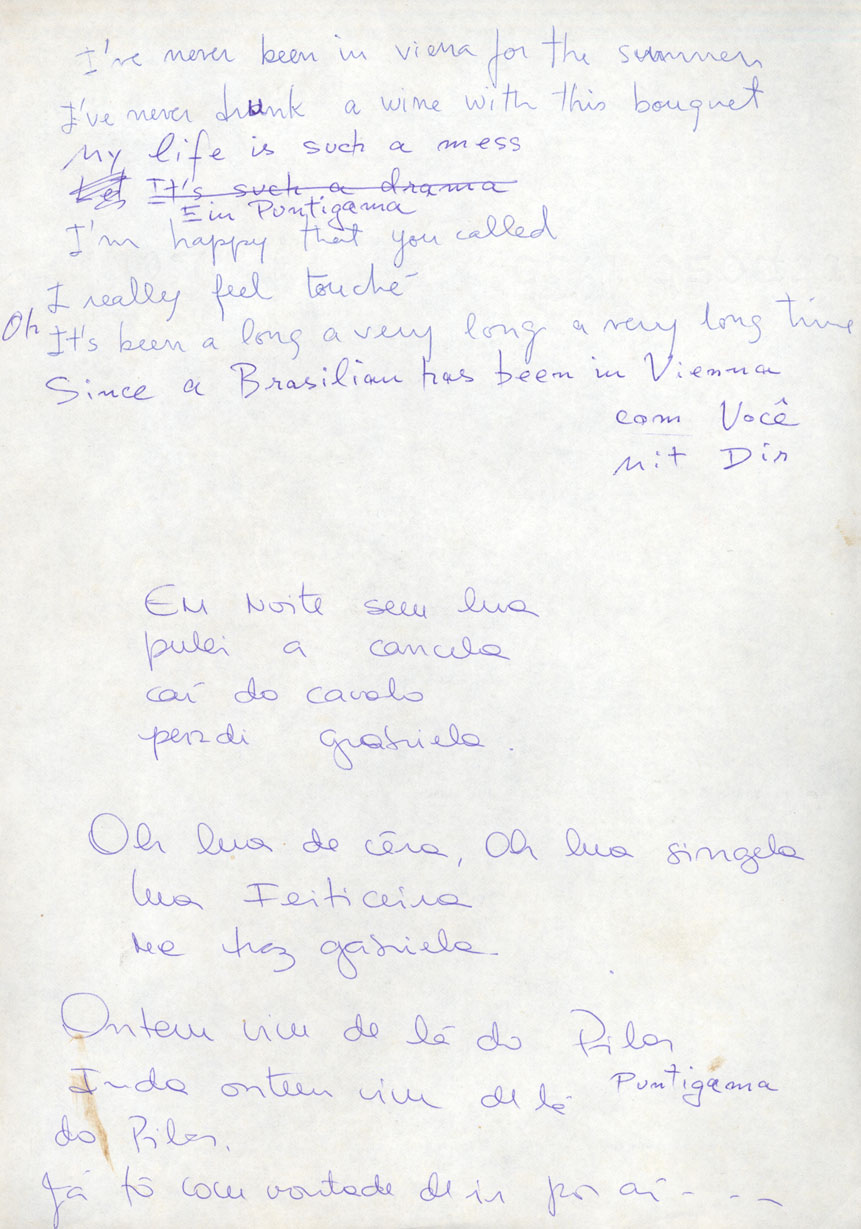 I've never been in viena for the summer
I've never drunk a wine with this bouquet
My life is such a mess
It's such a drama
Ein Puntigama
I'm happy that you called
I really feel touché
Oh It's been a long a very long a very long time
Since a Brasilian has been in Vienna
com Você
Mit Dir
EM NOITE sem lua
pulei a cancela
caí do cavalo
perdi gabriela.
Oh lua de cêra, Oh lua singela
lua Feiticeira
Me traz gabriela.
Ontem vim de lá do Pilar
Inda ontem vim de lá Puntigama
do Pilar.
Já tô com vontade de ir por aí - - -